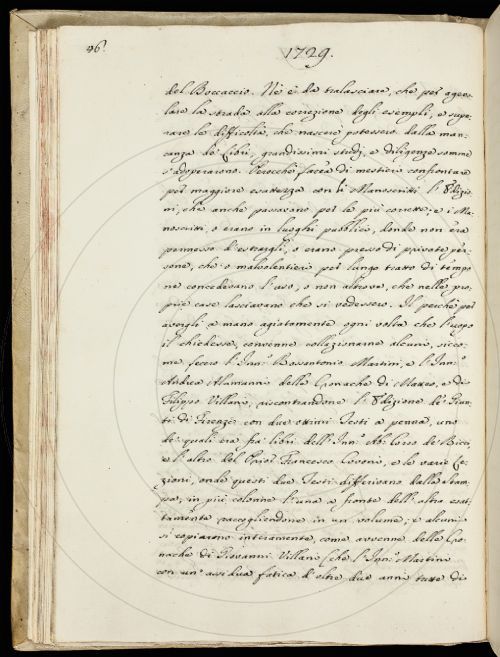 46.
1729.
del Boccaccio. Nè è da tralasciare, che per agevo-
lare la strada alla correzione degli esempli, e supe-
rare le difficoltà, che nascere potessero dalla man-
canza de' Libri, grandissimi studj, e diligenze somme
s'adoperarono. Perocchè facea di mestiere confrontare
per maggiore esattezza con li Manoscritti l'Edizio-
ni, che anche passavano per le più corrette; e i Ma-
noscritti, o erano in luoghi pubblici, donde non era
permesso l'estrargli, o erano presso di private per-
sone, che o malvolentieri per lungo tratto di tempo
ne concedevano l'uso, o non altrove, che nelle pro-
prie case lasciavano che si vedessero. Il perchè per
avergli a mano agiatamente ogni volta che l'uopo
il chiedesse, convenne collazionarne alcuni, sicco-
me fecero l'Inn.º Rossantonio Martini, e l'Inn.º
Andrea Alamanni delle Cronache di Matteo, e di
Filippo Villani, riscontrandone l'Edizione de' Giun-
ti di Firenze con due ottimi Testi a penna, uno
de' quali era fra' libri dell'Inn.º Ab. Corso de' Ricci,
e l'altro del Prior Francesco Covoni, e le varie Le-
zioni, onde questi due Testi differivano dalla stam-
pa, in più colonne l'una a fronte dell'altra esat-
tamente raccogliendone in un volume; e alcuni
si copiarono interamente, come avvenne della Cro-
nache di Giovanni Villani (che l'Inn.º Martini
con un' assidua fatica d'oltre due anni tutte di